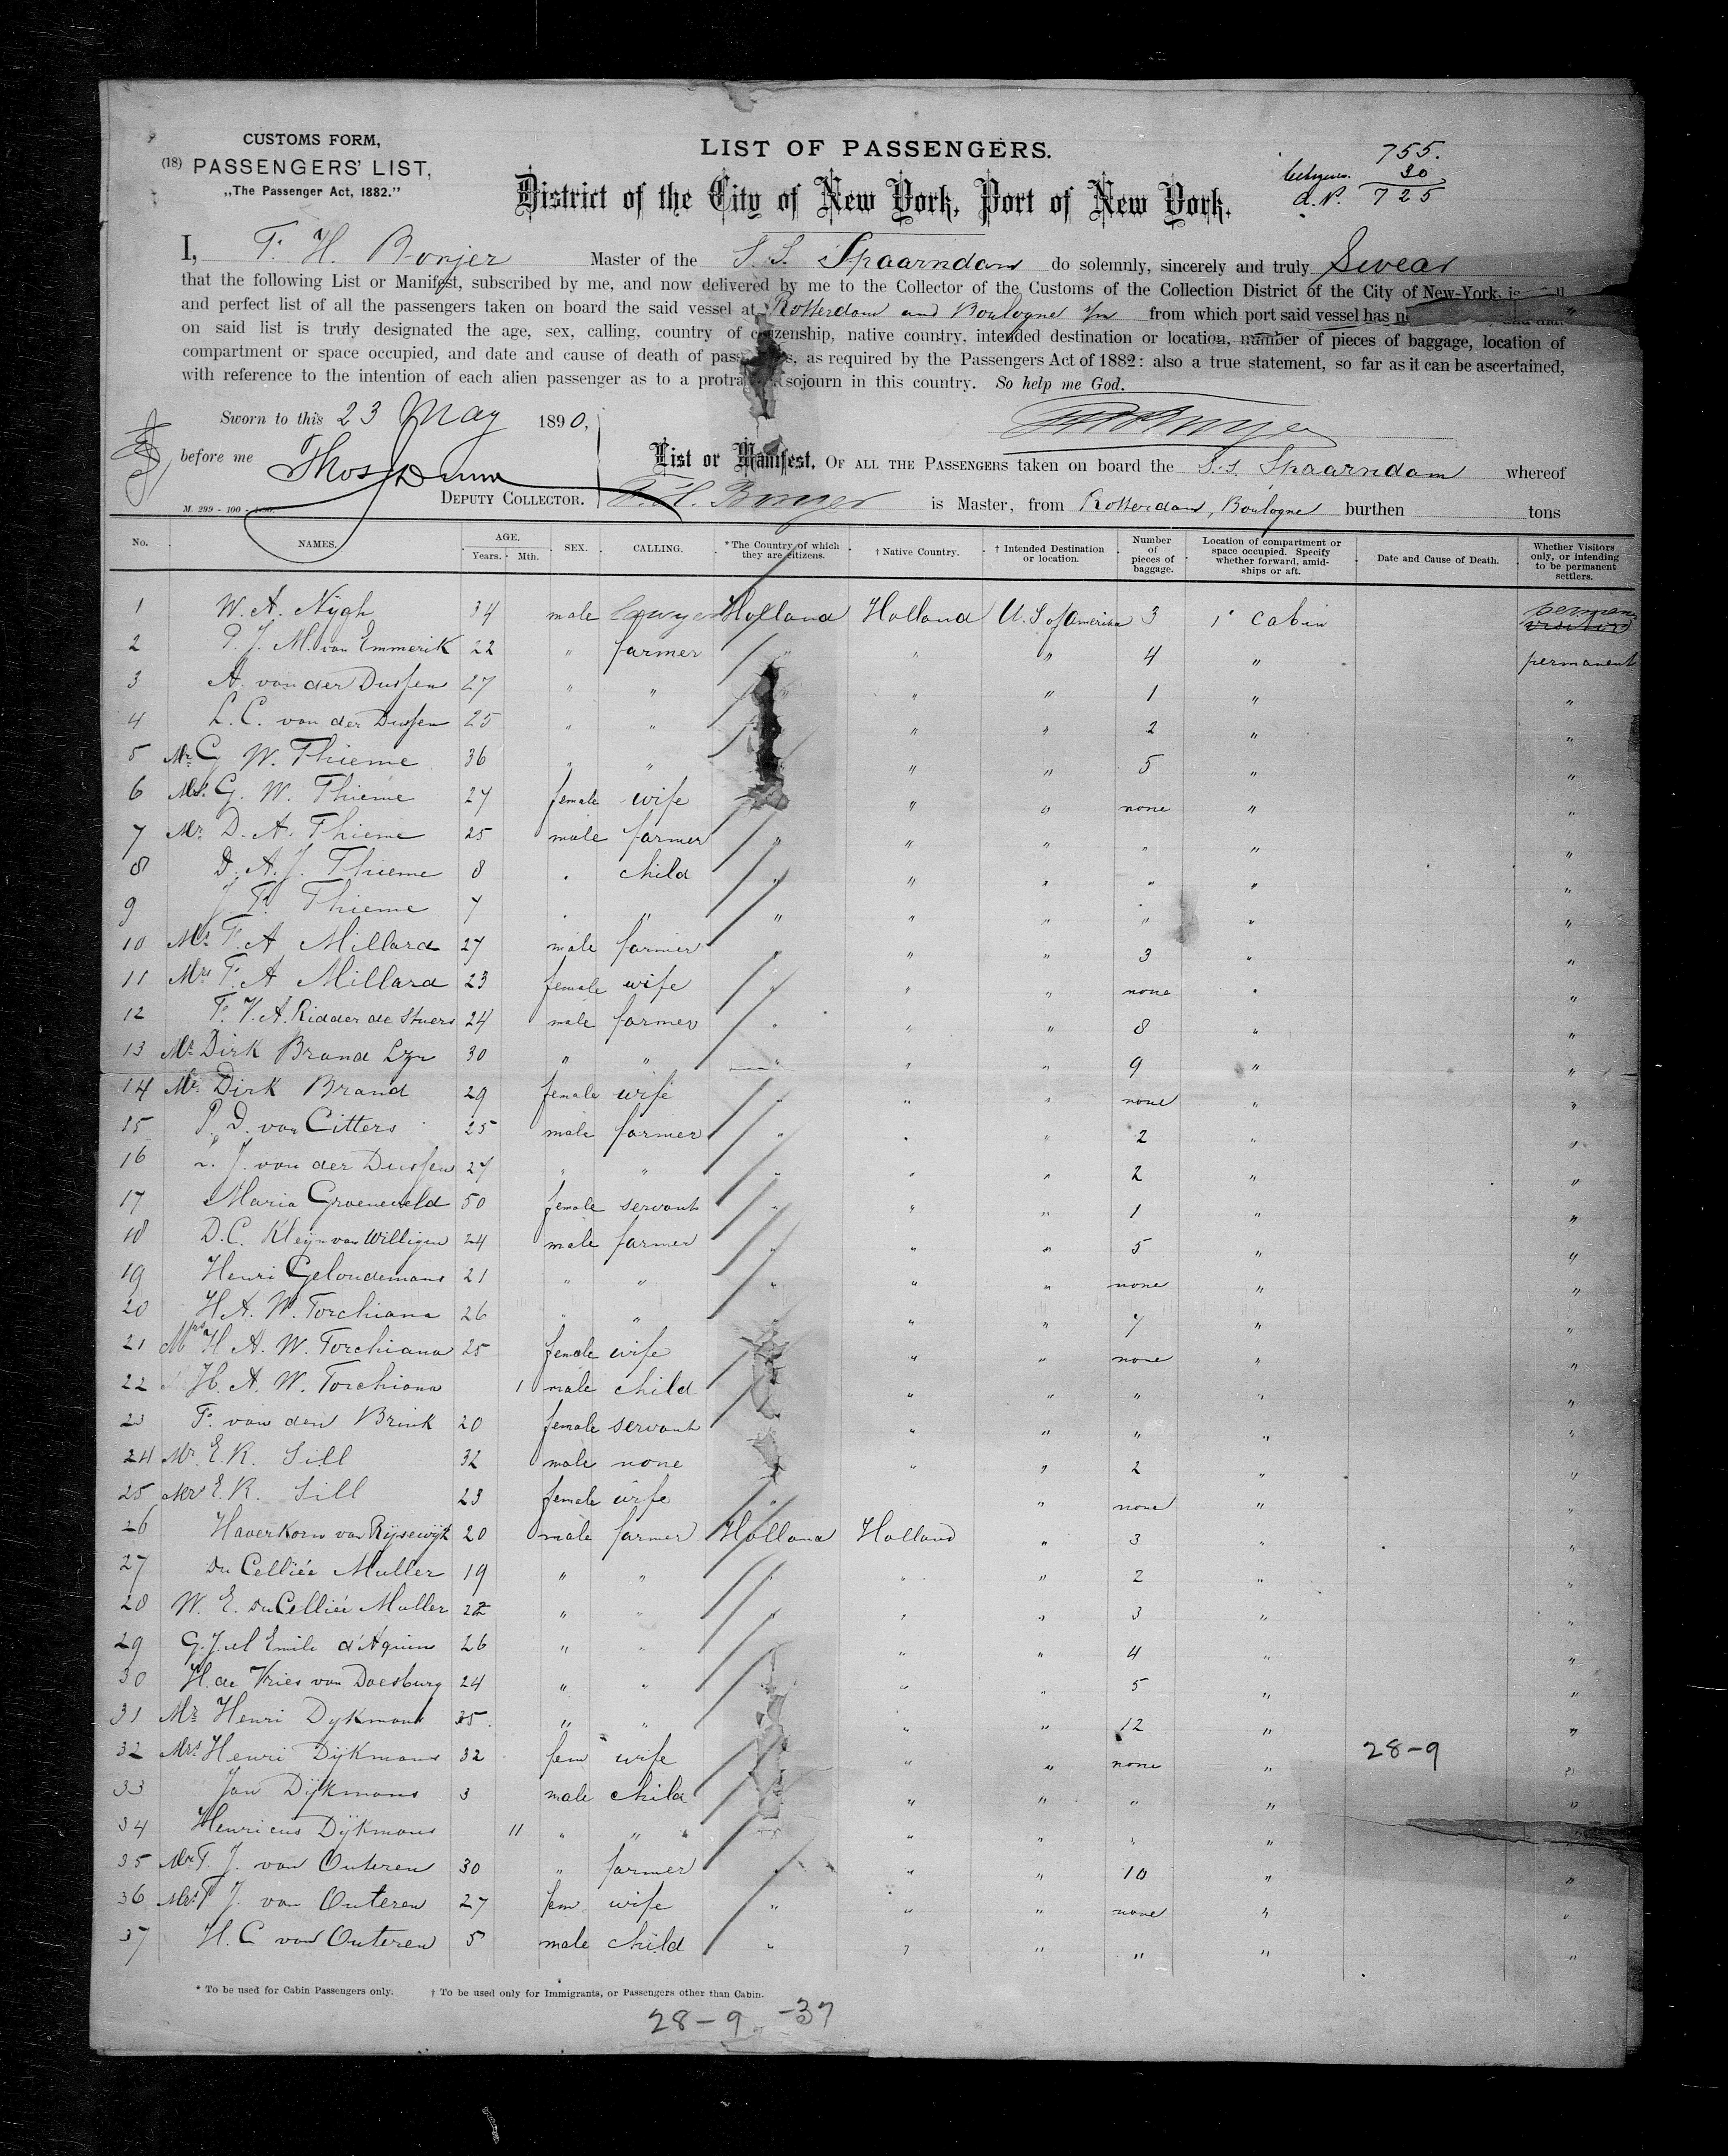 CUSTOMS FORM,
(18) PASSENGERS' LIST,
„The Passenger Act, 1882."
LIST OF PASSENGERS.
District of the City of New York, Port of New York.
755.
30
725
I, F. H. Bonjer Master of the S. S. Spaarndam do solemnly, sincerely and truly Swear
that the following List or Manifest, subscribed by me, and now delivered by me to the Collector of the Customs of the Collection District of the City of New-York, is
and perfect list of all the passengers taken on board the said vessel at Rotterdam and Boulogne s/m from which port said vessel has
on said list is truly designated the age, sex, calling, country of citizenship, native country, intended destination or location, number of pieces of baggage, location of
compartment or space occupied, and date and cause of death of passengers, as required by the Passengers Act of 1882: also a true statement, so far as it can be ascertained,
with reference to the intention of each alien passenger as to a protracted sojourn in this country. So help me God.
Sworn to this 23 May 1890,
before me Thos Dunn
DEPUTY COLLECTOR.
M. 299 - 100 -
List or Manifest, OF ALL THE PASSENGERS taken on board the S.S. Spaarndam whereof
F. H. Bonjer is Master, from Rotterdam, Boulogne burthen tons
No. NAMES. AGE. Years. Mth. SEX. CALLING. * The Country of which they are citizens. † Native Country. † Intended Destination or location. Number of pieces of baggage. Location of compartment or space occupied. Specify whether forward, amidships or aft. Date and Cause of Death. Whether Visitors only, or intending to be permanent settlers.
1 W. A. Nÿgh 34 male lawyer Holland Holland U. S of Amerika 3 1' cabin permanent visitor
2 P. J. M. van Emmerik 22 " farmer " " " 4 " permanent
3 A. van der Dussen 27 " " " " " 1 " "
4 L. C. van der Dussen 25 " " " " 2 " "
5 Mr. G W. Thieme 36 " " " " 5 " "
6 Mrs. G. W. Thieme 27 female wife " " none " "
7 Mr. D. A. Thieme 25 male farmer " " " " " "
8 D. A. J. Thieme 8 " child " " " " " "
9 J. F. Thieme 7 " " " " " " " "
10 Mr F. A Millard 27 male farmer " " " 3 " "
11 Mrs F. A Millard 23 female wife " " " none " "
12 F. V. A. Ridder de Stuers 24 male farmer " " " 8 " "
13 Mr Dirk Brand Lzn 30 " " " " " 9 " "
14 Mr. Dirk Brand 29 female wife " " " none " "
15 P. D. van Citters 25 male farmer " " " 2 " "
16 J. van der Dussen 27 " " " " " 2 " "
17 Maria Groeneveld 50 female servant " " " 1 " "
18 D. C. Kleyn van Willigen 24 male farmer " " " 5 " "
19 Henri Geloudemans 21 " " " " " none " "
20 H. A. W. Torchiana 26 " " " " 7 " "
21 Mrs H A. W. Torchiana 25 female wife " " none " "
22 H. A. W. Torchiana 1 male child " " " " "
23 F. van den Brink 20 female servant " " " " "
24 Mr. E. R. Sill 32 male none " " 2 " "
25 Mrs E. R. Sill 23 female wife " " none " "
26 Haverkorn van Rijsewijk 20 male farmer Holland Holland " 3 " "
27 du Celliée Muller 19 " " " " " 2 " "
28 W. E. du Celliée Muller 22 " " " " " 3 " "
29 G. Juel Emile d'Aquin 26 " " " " 4 " "
30 H. de Vries van Doesburg 24 " " " " 5 " "
31 Mr Henri Dykmans 35 " " " " 12 " "
32 Mrs. Henri Dÿkmans 32 fem wife " " none " 28-9 "
33 Jan Dÿkmans 3 male child " " " " "
34 Henricus Dÿkmans 11 " " " " " " "
35 Mr. T. J. van Outeren 30 " farmer " " " 10 " "
36 Mrs T J. van Outeren 27 fem. wife " " " none " "
37 H. C van Outeren 5 male child " " " " " "
* To be used for Cabin Passengers only. † To be used only for Immigrants, or Passengers other than Cabin.
28-9 -37